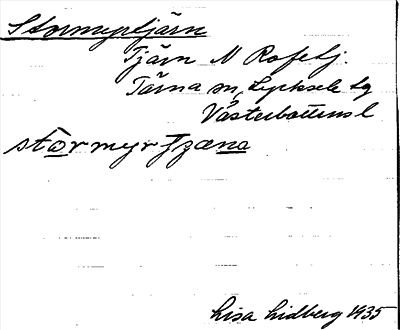 Stormyrtjärn
Tjärn N Rofstj.
Tärna sn, Lycksele lg
Västerbottens l
stormyrtjæna
Lisa Lidberg 1935